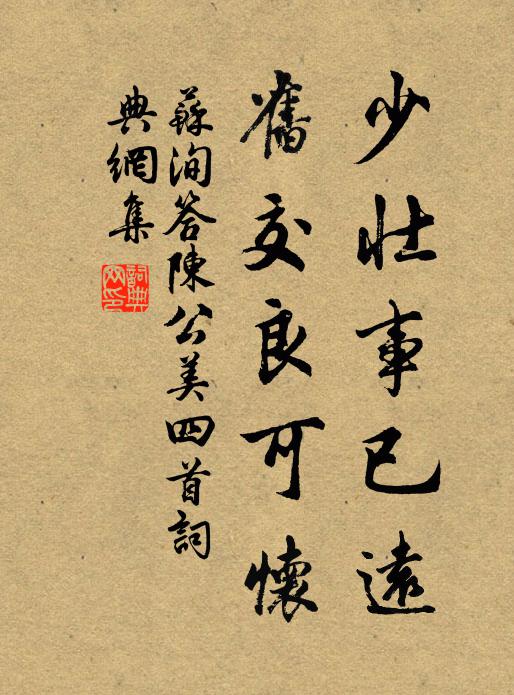 少壯事已遠
舊交良可懷
蘇洵答陳公美四首詞
典網集
詞典網印